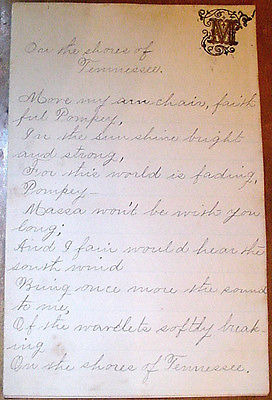 M
On the shores of
Tennessee.
Move my arm chair, faith
ful Pompey,
In the sun shine bright
and strong,
For this world is fading,
Pompey—
Massa won't be with you
long;
And I fain would hear the
south wind
Bring once more the sound
to me,
Of the wavelets softly break
ing
On the shores of Tennessee.